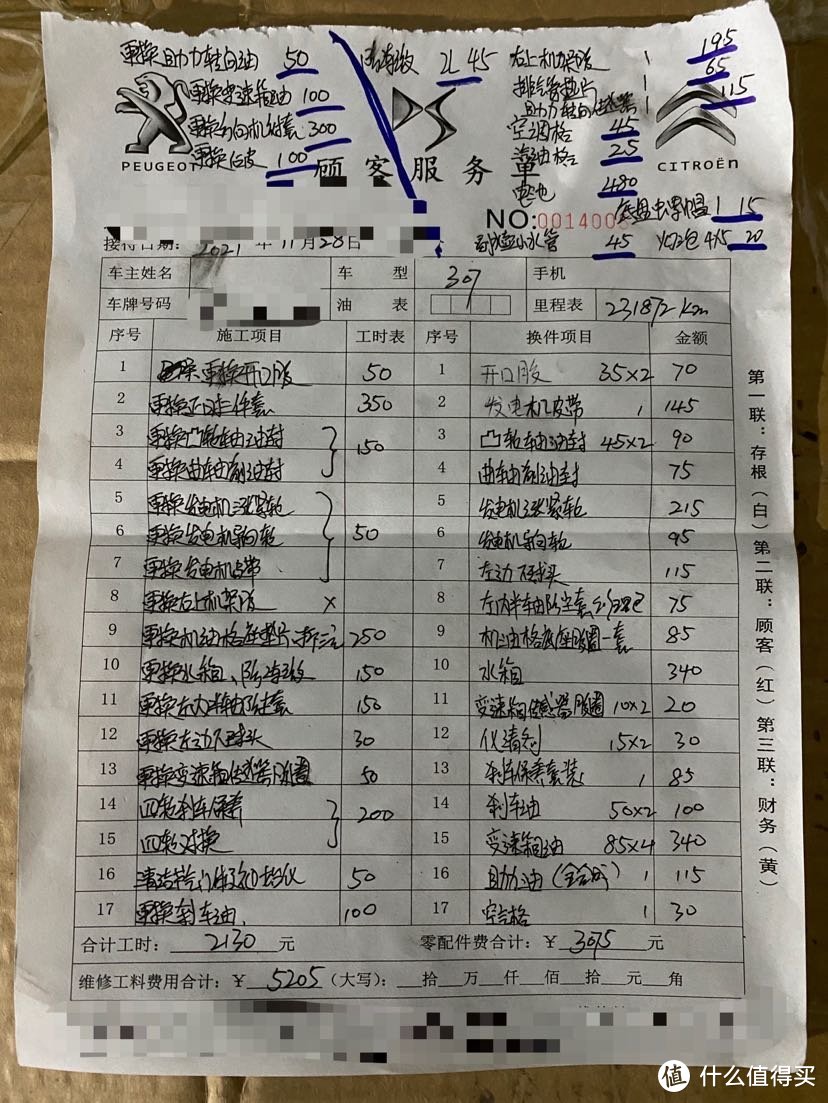 更换助力转向油 50 防冻液 2L 45 右上机架胶 1 195
更换变速箱油 100 排气管垫片 1 65
更换方向机衬套 300 助力转向传感器 1 115
更换 100 空调格 45
PEUGEOT 顾客服务单 汽油格 25 CITROËN
电池 480
NO:001400 1 15
接待日期: 2021年11月28日 小水管 45 4X5 20
车主姓名 车型 307 手机
车牌号码 油表 里程表 231872 Km
序号 施工项目 工时表 序号 换件项目 金额
1 更换开口胶 50 1 开口胶 35×2 70
2 更换正时三件套 350 2 发电机皮带 1 145
3 更换凸轮轴油封 150 3 凸轮轴油封 45×2 90
4 更换曲轴前油封 4 曲轴前油封 75
5 更换发电机涨紧轮 5 发电机涨紧轮 215
6 更换发电机导向轮 50 6 发电机导向轮 95
7 更换发电机皮带 7 左边下球头 115
8 更换右上机架胶 × 8 左内半轴防尘套 75
9 更换机油格座垫片 250 9 机油格底座胶圈一套 85
10 更换水箱、防冻液 150 10 水箱 340
11 更换左内半轴防尘套 150 11 变速箱传感器胶圈 10×2 20
12 更换左边下球头 30 12 化清剂 15×2 30
13 更换变速箱传感器胶圈 50 13 刹车保养套装 1 85
14 四轮刹车保养 200 14 刹车油 50×2 100
15 四轮对换 15 变速箱油 85×4 340
16 清洁节气门 50 16 助力油(全合成) 1 115
17 更换刹车油 100 17 空气格 1 30
合计工时: 2130 元 零配件费合计: ¥ 3075 元
维修工料费用合计: ¥ 5205 (大写): 拾 万 仟 佰 拾 元 角
第一联:存根(白) 第二联:顾客(红) 第三联:财务(黄)
值 什么值得买